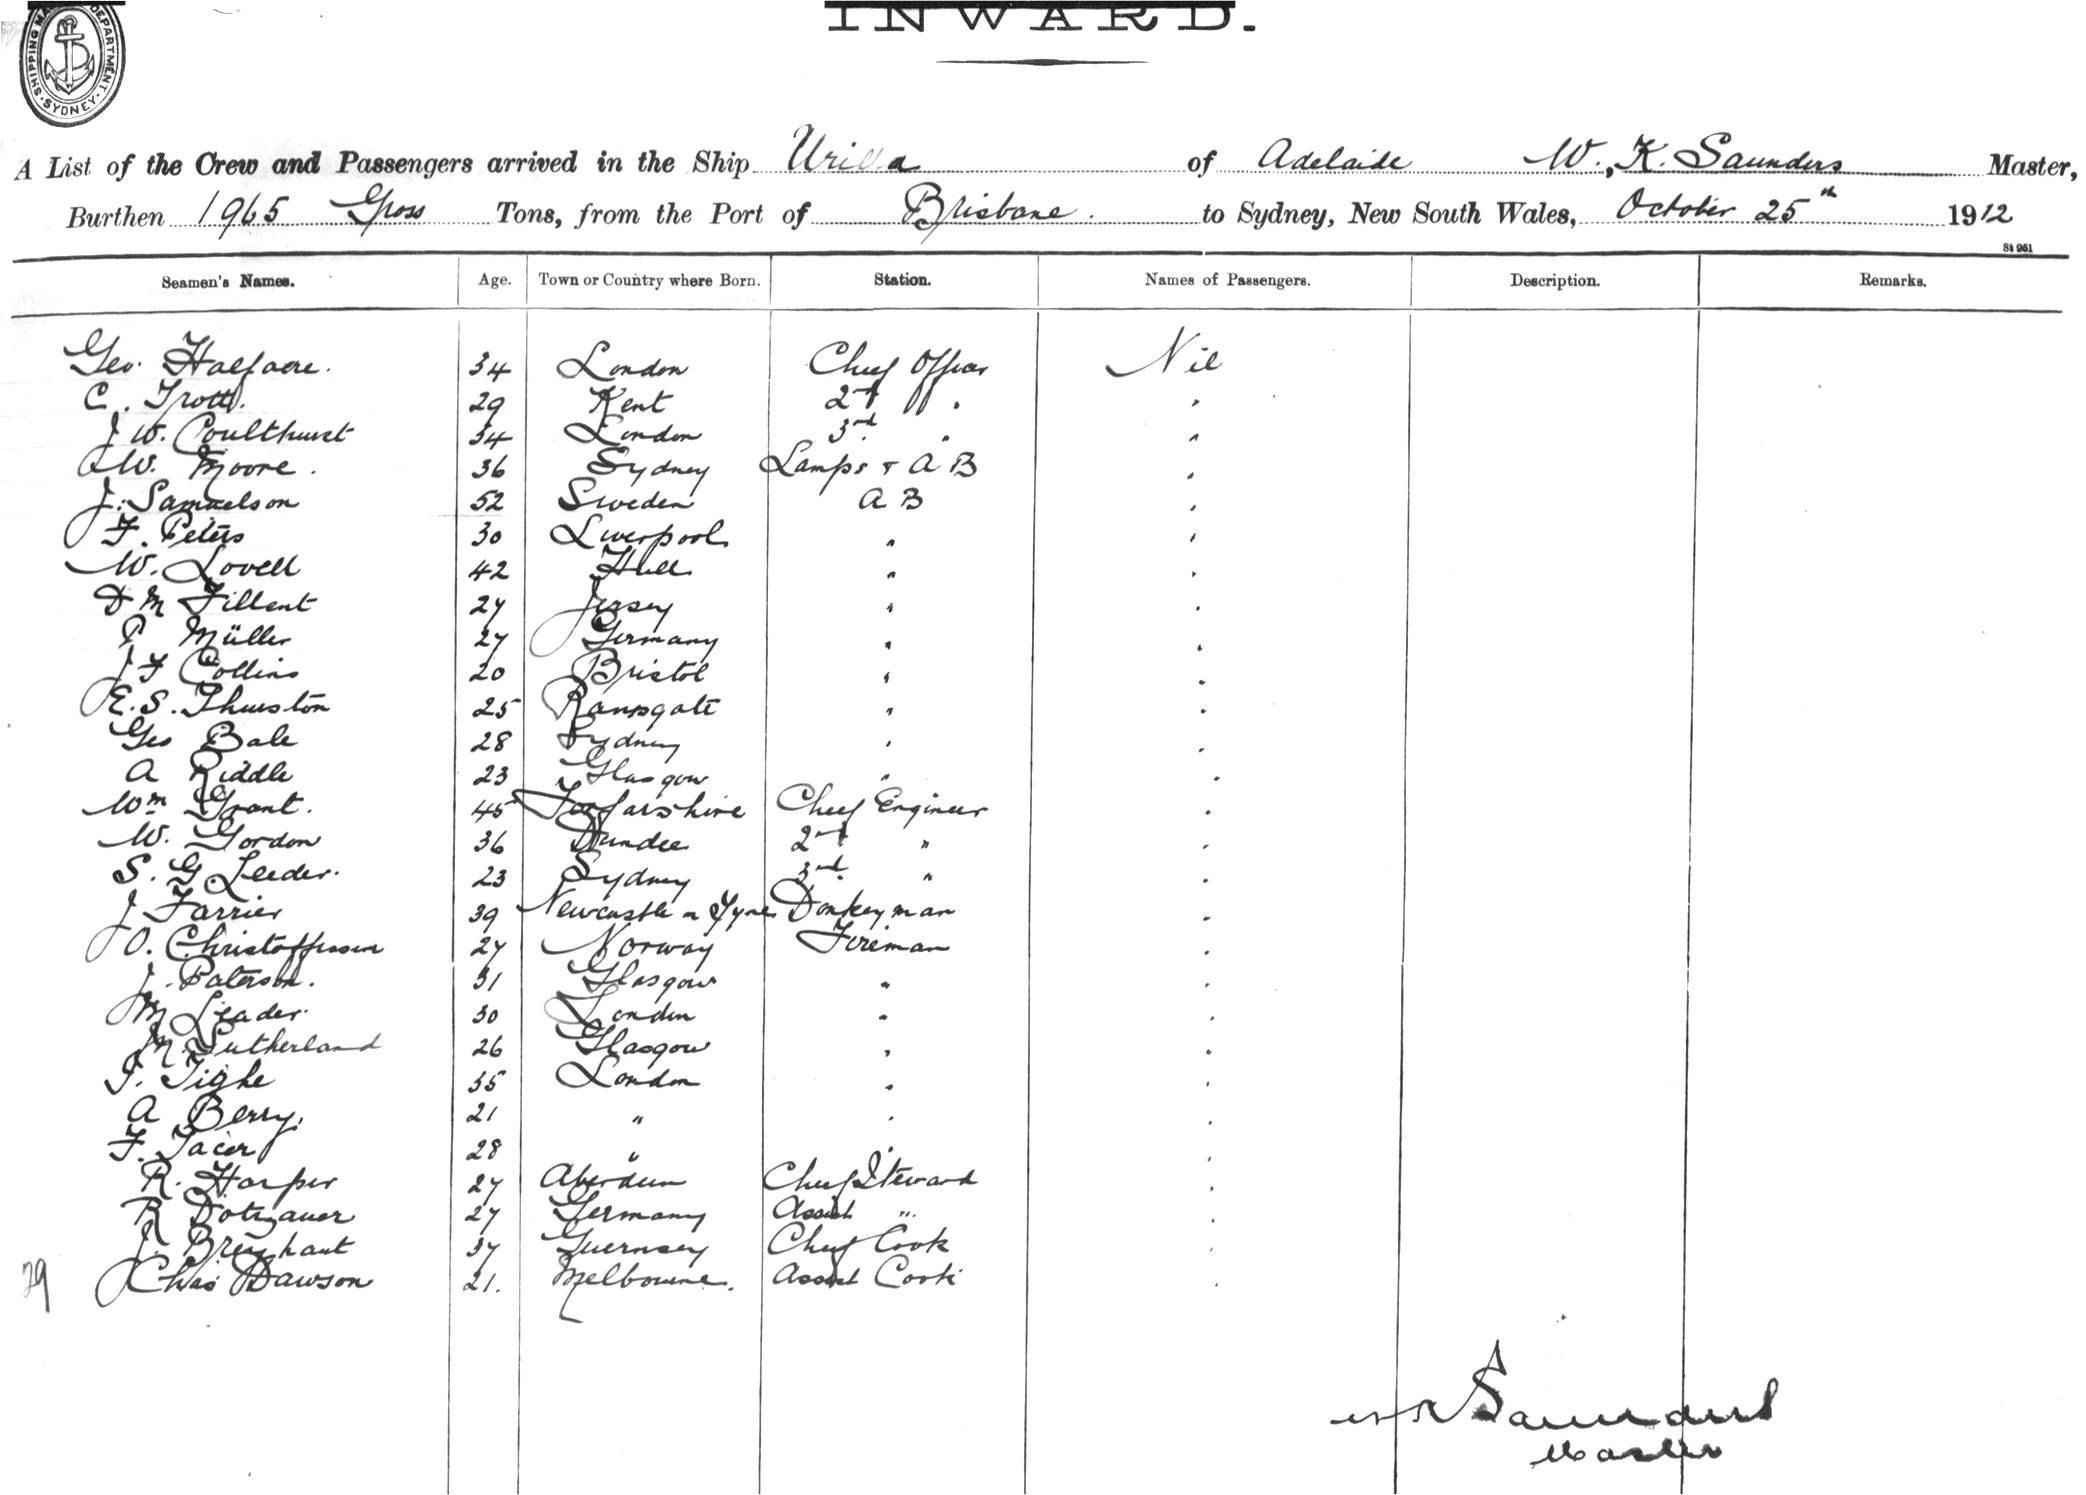 INWARD.
SHIPPING MA DEPARTMENT. SYDNEY.
A List of the Crew and Passengers arrived in the Ship Urilla of Adelaide W. K. Saunders Master,
Burthen 1965 Gross Tons, from the Port of Brisbane. to Sydney, New South Wales, October 25th 1912
St 951
Seamen's Names. Age. Town or Country where Born. Station. Names of Passengers. Description. Remarks.
Geo. Halfacre. 34 London Chief Officer Nil
C. Trott. 29 Kent 2nd " "
J W. Coulthurst 34 London 3rd " "
W. Moore. 36 Sydney Lamps & A B "
J. Samuelson 52 Sweden A B "
F. Peters 30 Liverpool " "
W. Lovell 42 Hull " "
D M Fillent 27 Jersey " "
P Müller 27 Germany " "
J F Collins 20 Bristol " "
E. S. Thurston 25 Ramsgate " "
Geo Bale 28 Sydney " "
A Riddle 23 Glasgow " "
Wm Grant. 45 Forfarshire Chief Engineer "
W. Gordon 36 Dundee 2nd " "
S. G. Leeder. 23 Sydney 3rd " "
J Farrier 39 Newcastle on Tyne Donkeyman "
O. Christoffersen 27 Norway Fireman "
J. Paterson. 31 Glasgow " "
M Leader. 30 London " "
M. Sutherland 26 Glasgow " "
J. Tighe 35 London " "
A Berry. 21 " " "
F. Tacer 28 " " "
R. Harper 27 Aberdeen Chief Steward "
R Dotzauer 27 Germany Assist " "
J. Brehaut 37 Guernsey Chief Cook "
29 Chas Dawson 21. Melbourne. Assist Cook "
W K Saunders
Master